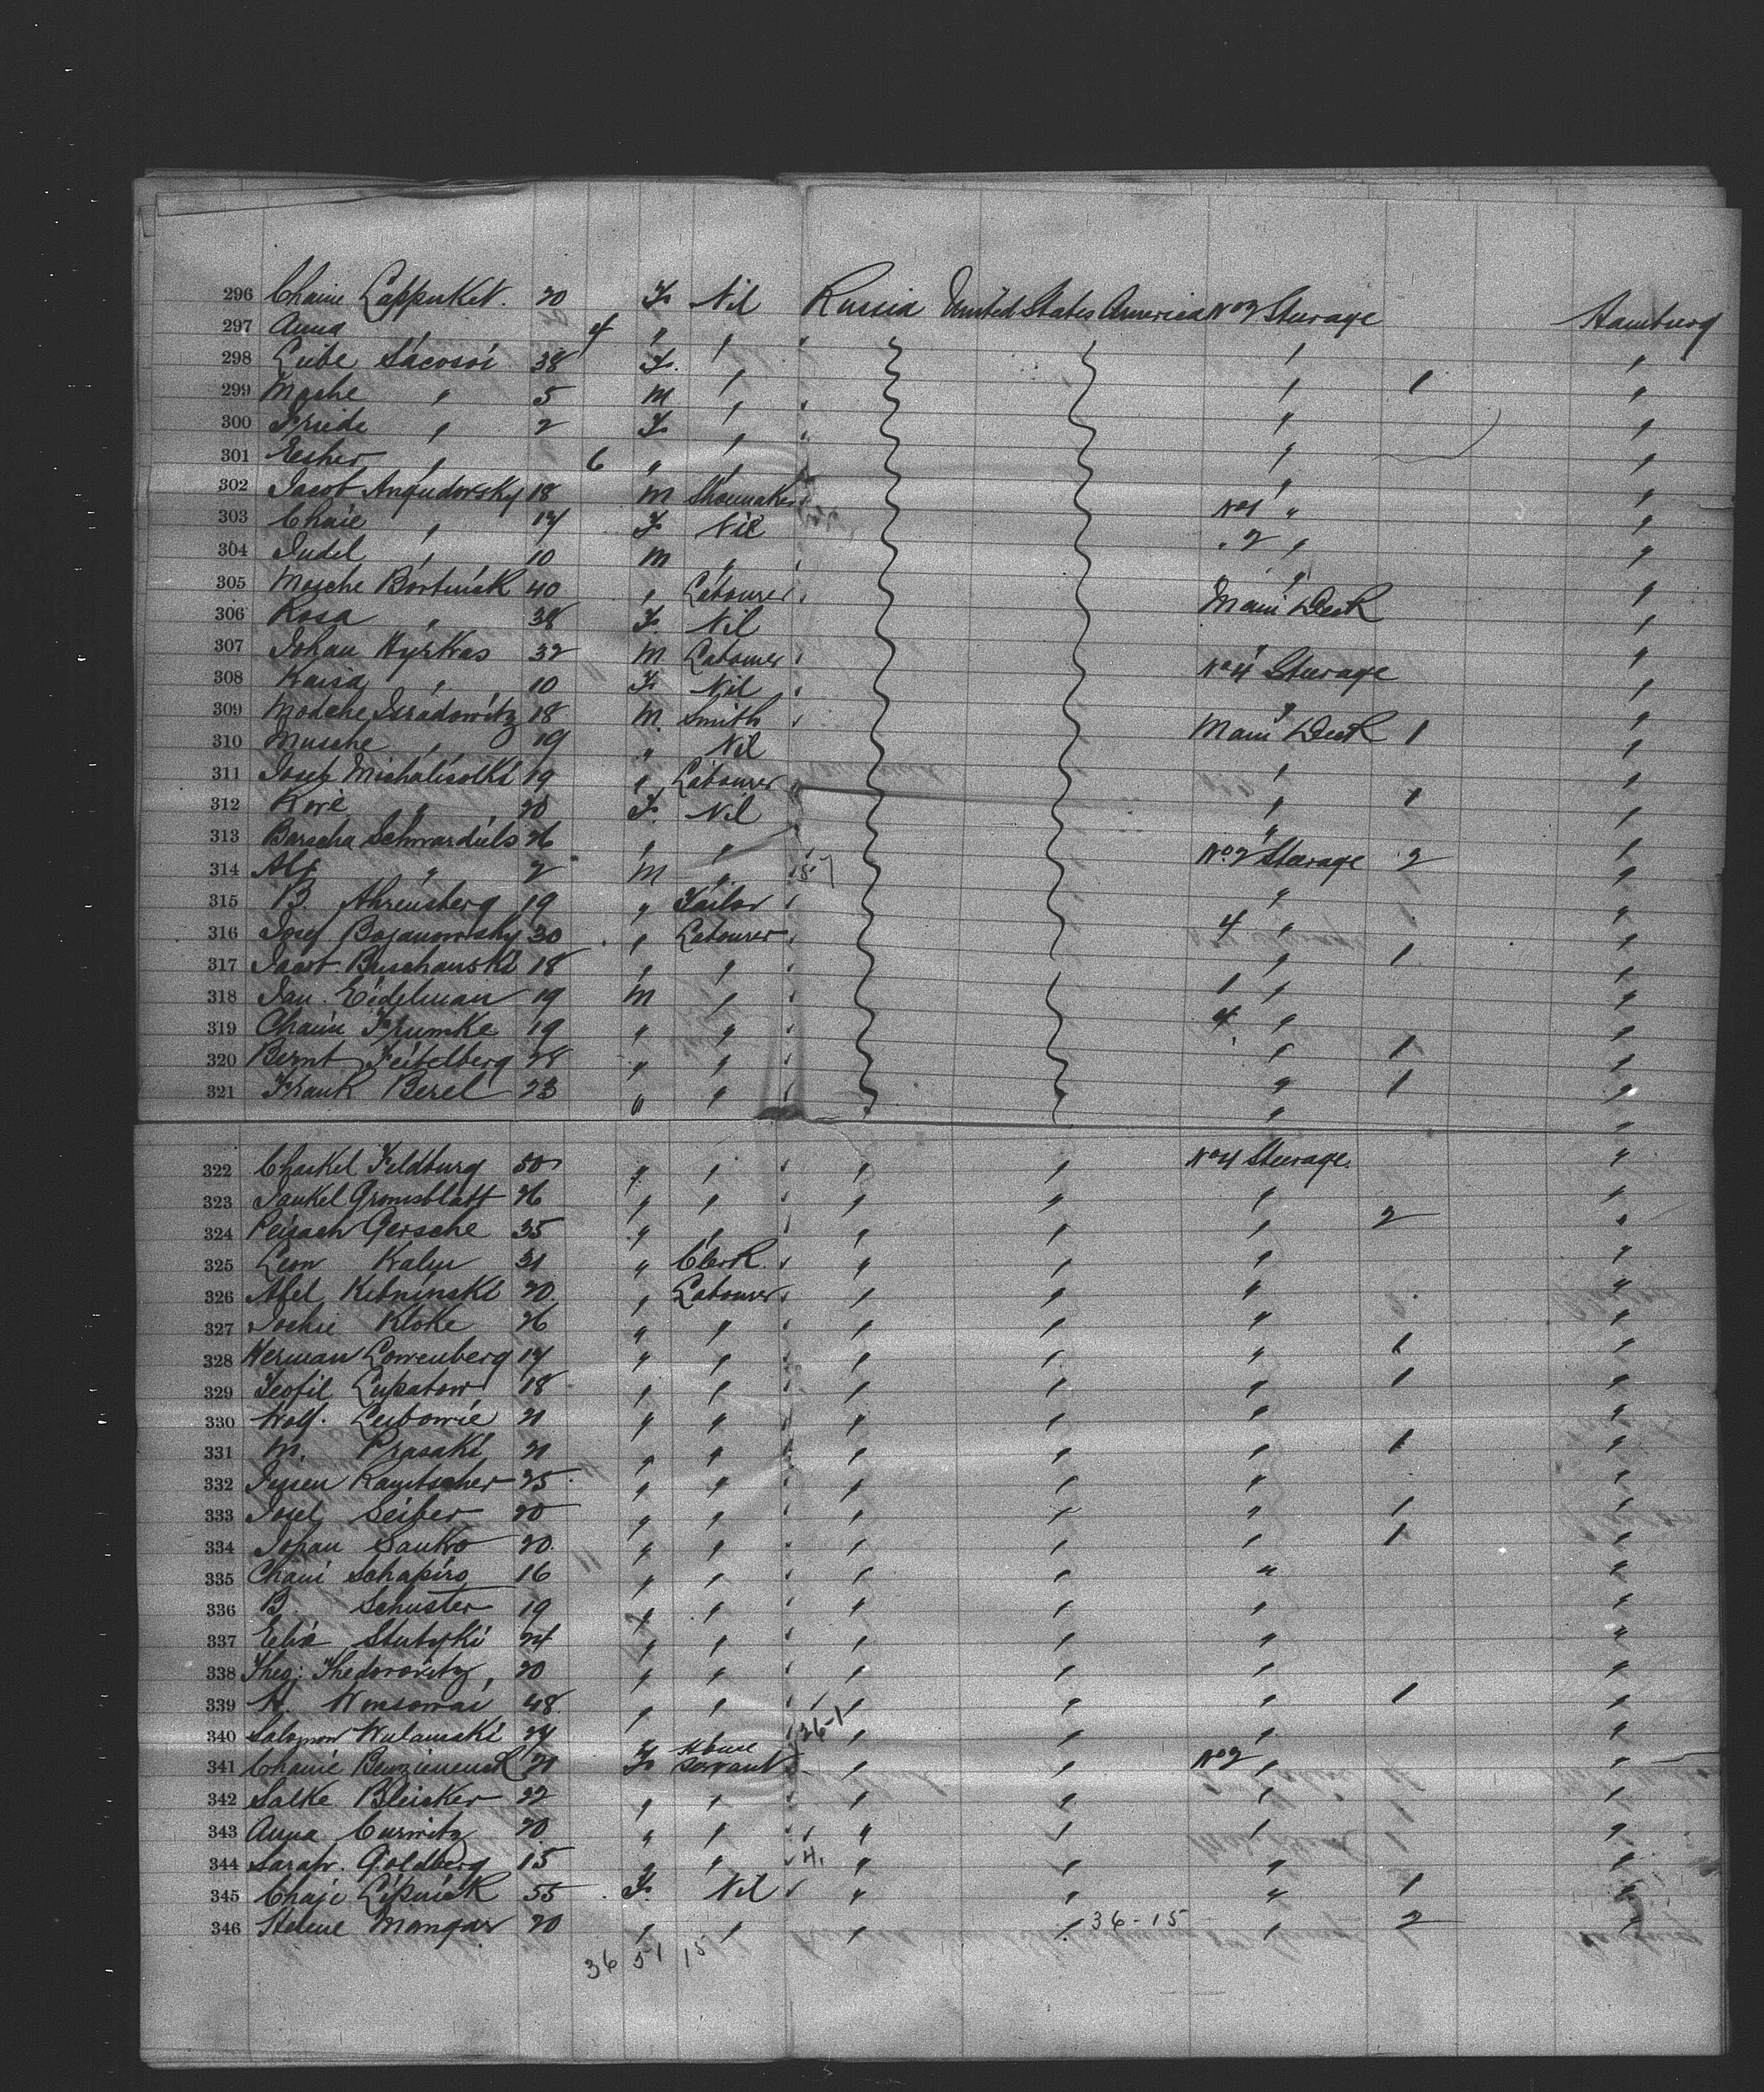 296 Chaine Lappuket. 20 F. Nil Russia United States America No 2 Sturage Hamburg
297 Anna 4 " " " "
298 Liebe Sacosoi 38 F. " " 1 "
299 Moshe " 5 M " " "
300 Friede " 2 F. " " "
301 Esther " 6 " " " "
302 Jacob Angudowsky 18 M Shoemaker No 1 " "
303 Chaie " 17 F. Nil . 2 " "
304 Judel " 10 M " " "
305 Mosche Bortnick 40 " Labourer Main Deck "
306 Rosa " 38 F. Nil " "
307 Johan Hyrkas 32 M Labourer No 4 Sturage "
308 Kaisa " 10 F. Nil " "
309 Modche Isradowitz 18 M. Smith Main Deck 1 "
310 Musche " 19 " Nil " "
311 Josef Michalisolki 19 " Labourer " 1 "
312 " 20 F. Nil " "
313 Barscha Schwardiels 26 " " No. 2 Sturage 2 "
314 " 2 M " 157 " "
315 B. Ahrensberg 19 " Tailor 4 " "
316 Josef Bojanowsky 30 " Labourer " 1 "
317 Jacob Buschanski 18 " " 1 " "
318 Jan. Eidelman 19 M " 4 " "
319 Chaim Frumke 19 " " " 1 "
320 Bernt Feitelberg 28 " " " 1 "
321 Frank Berel 23 " " " "
322 Chaikel Feldburg 50 " " " " No 4 Sturage. "
323 Jankel Gromsblatt 26 " " " " " "
324 Peisach Gersche 35 " " " " " 2 "
325 Leon Kahn 31 " Clerk. " " " "
326 Abel Kibninski 20 " Labourer " " " "
327 Jochie Kloke 26 " " " " " "
328 Herman Lowenberg 17 " " " " " 1 "
329 Teofil Lupatow 18 " " " " " 1 "
330 Wolf. Leibowie 21 " " " " " "
331 M. Prasaki 21 " " " " " 1 "
332 Kamtscher 25 " " " " " "
333 Josel Seiber 20 " " " " " 1 "
334 Johan Sauko 20. " " " " " 1 "
335 Chaim Schapiro 16 " " " " " "
336 B. Schuster 19 " " " " " "
337 Elia Stutzki 24 " " " " " "
338 Theo: Thedorovitz, 20 " " " " " "
339 H. Wonsowai 48 " " " " " 1 "
340 Salomon Wulamski 24 " " 36-1 " " " "
341 Chaine 21 F. House Servant " " No 2 " "
342 Salke Bleicker 22 " " " " " "
343 Anna Curwitz 20 " " " " " "
344 Sarah. Goldberg 15 " " 4. " " " "
345 Chaje Lipnick 55 F. Nil " " " 1 "
346 Helene Mangar 20 " " " " 36-15 " 2 "
36 51 15